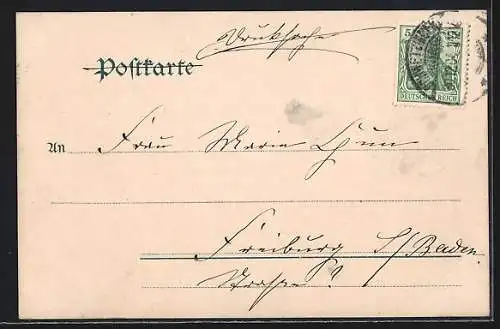 Drucksache
Postkarte
5
DEUTSCHES REICH
An Frau Marie Thun
Freiburg i/Baden
Strasse